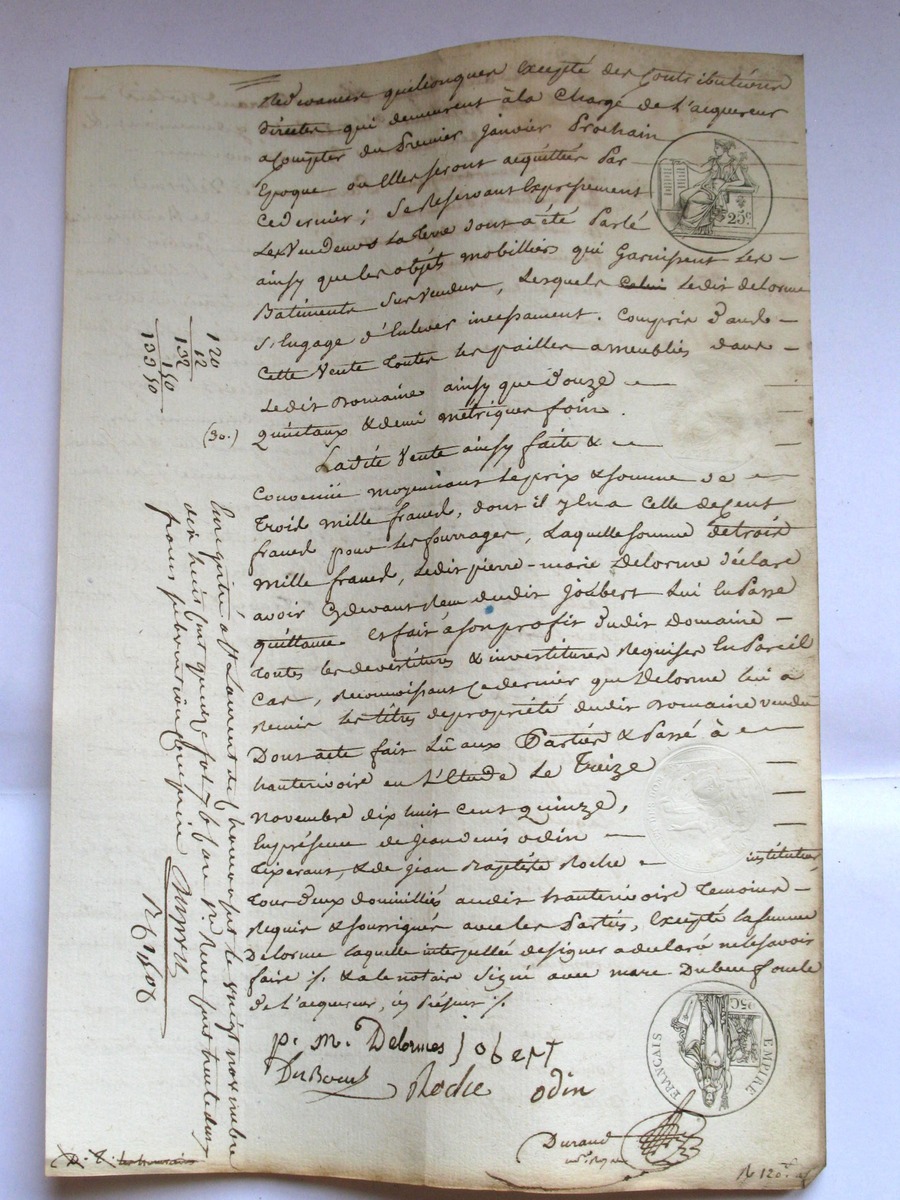 Redevances quelconques excepté des Contributions
directes qui demeurent à la Charge de l'acquereur
a Compter du Premier janvier Prochain
Epoque ou Elles seront acquittées Par
Ce dernier ; Se Reservant Expressement
Les Vendeurs La terre dont a été Parlé
ainsy que les objéts mobilliers qui Garnissent Les
Batiments Sus vendus, Lesquels Ledit delorme
S'Engage d'Enlever incessament. Compris dans
Cette Vente toutes les pailles ameublies dans
Ledit Domaine ainsy que Douze
quintaux & demi métriques foin.
Ladite Vente ainsy faite &
Convenüe moyennant Le prix & somme de
trois mille francs, dont il y En a Celle de Cent
francs pour Les fourrages, Laquelle somme de trois
mille francs, Ledit pierre-marie Delorme déclare
avoir Cydevant Reçu dudit Jobert Lui En Passe
quittance. Et fait à son profit dudit Domaine
toutes les devestitures & investitures Requises En Pareil
Cas, Reconnoissant Ce dernier que Delorme lui a
Remis Les titres de propriété dudit Domaine vendu
Dont acte fait Lû aux Parties & Passé à
hauterivoire en L'Etude Le Treize
novembre dix huit Cent quinze,
En présence de jean denis odin
Tixerant, & de jean Baptiste Roche institution
Tous deux domiciliés audit hauterivoire Temoins
Requis & soussignés avec les Parties, Excepté la femme
Delorme laquelle interpellée de signer a declaré ne le savoir
faire /. & a le notaire Signé avec marc Duboeuf oncle
de L'acquereur, ici Présent /.
p. m. Delormes jobert
DuBoeuf Roche odin
Durand
25 C.
EMPIRE FRANÇAIS
25 C
120
12
132
150
1350
(30.)
Enregistré à St Laurent de Chamousset le vingt novembre
dix huit cent quinze fol. 76
francs